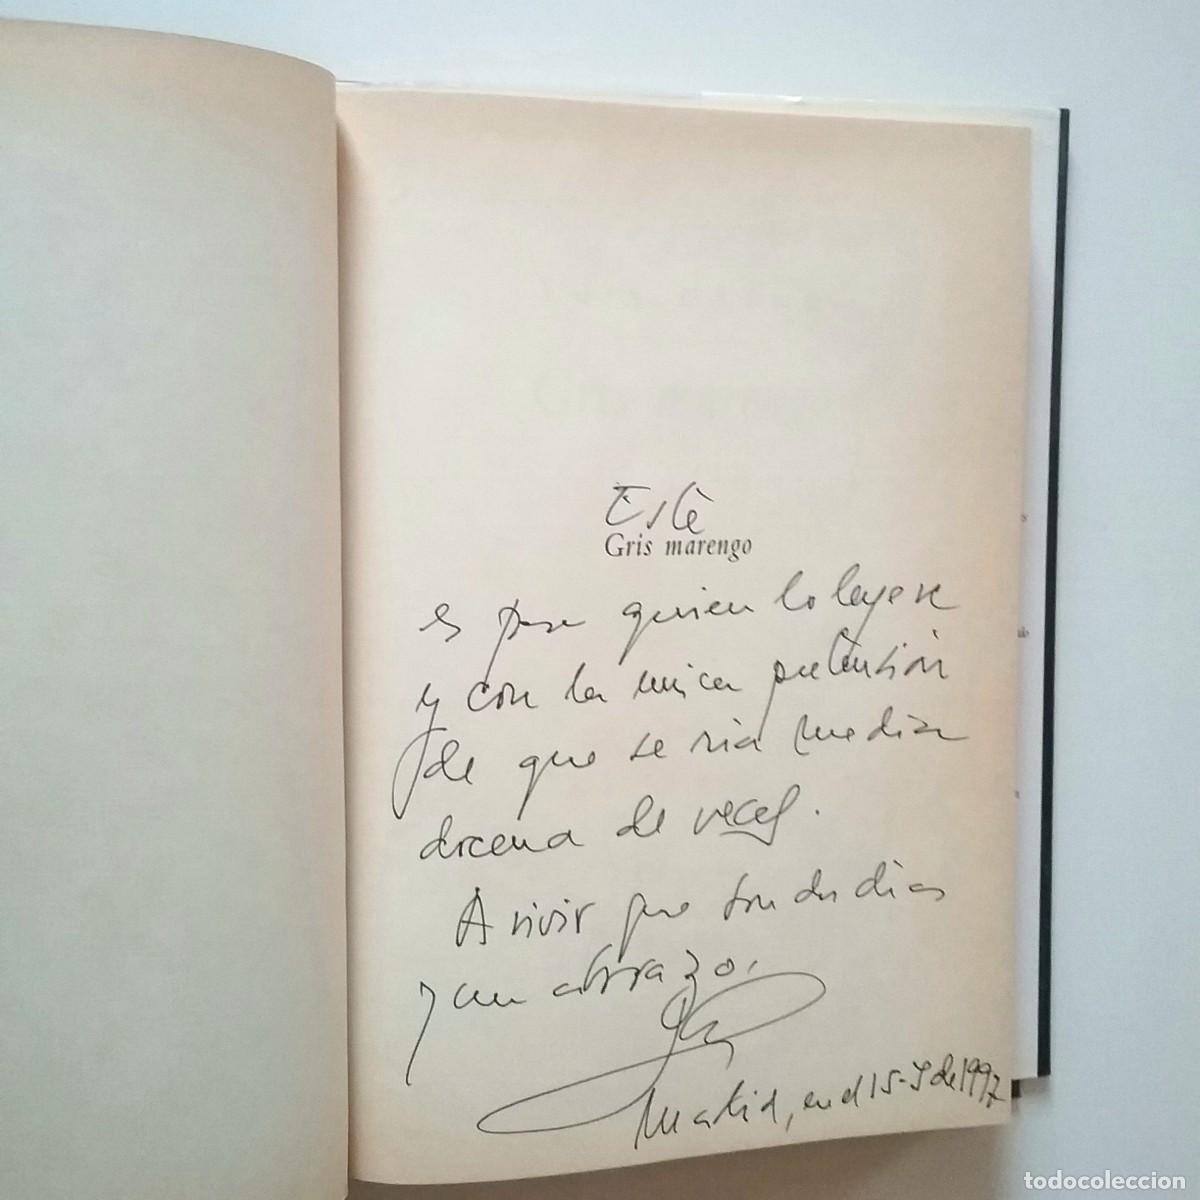 Este
Gris marengo
es para quien lo leyere
y con la única pretensión
de que se ría media
docena de veces.
A vivir que son dos días
y un abrazo.
Madrid, en el 15-5 de 1997
todocoleccion